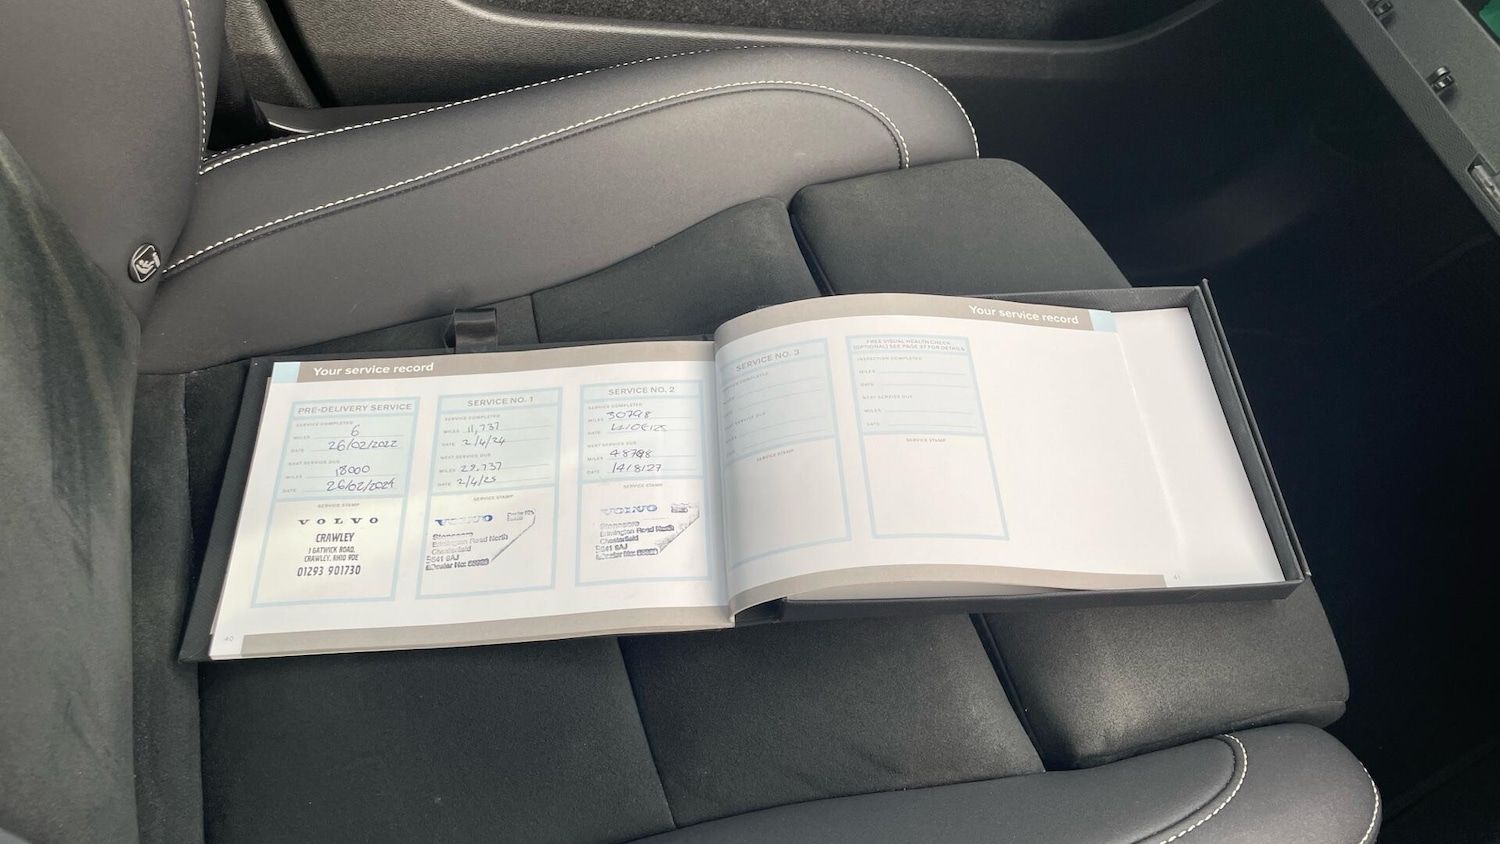 Your service record
PRE-DELIVERY SERVICE
SERVICE COMPLETED
MILES 6
DATE 26/02/2022
NEXT SERVICE DUE
MILES 18000
DATE 26/02/2024
SERVICE STAMP
VOLVO
CRAWLEY
1 GATWICK ROAD,
CRAWLEY, RH10 9DE
01293 901730
SERVICE NO. 1
SERVICE COMPLETED
MILES 11,737
DATE 2/4/24
NEXT SERVICE DUE
MILES 29,737
DATE 2/4/25
SERVICE STAMP
VOLVO
Stoneacre
Brimington Road North
Chesterfield
S41 9AJ
Dealer No:
SERVICE NO. 2
SERVICE COMPLETED
MILES 30798
DATE
NEXT SERVICE DUE
MILES 48798
DATE 14/8/27
SERVICE STAMP
VOLVO
Stoneacre
Brimington Road North
Chesterfield
S41 9AJ
Dealer No:
40
Your service record
SERVICE NO. 3
SERVICE COMPLETED
SERVICE STAMP
FREE VISUAL HEALTH CHECK
(OPTIONAL) SEE PAGE 37 FOR DETAILS
INSPECTION COMPLETED
MILES
DATE
NEXT SERVICE DUE
MILES
DATE
SERVICE STAMP
41